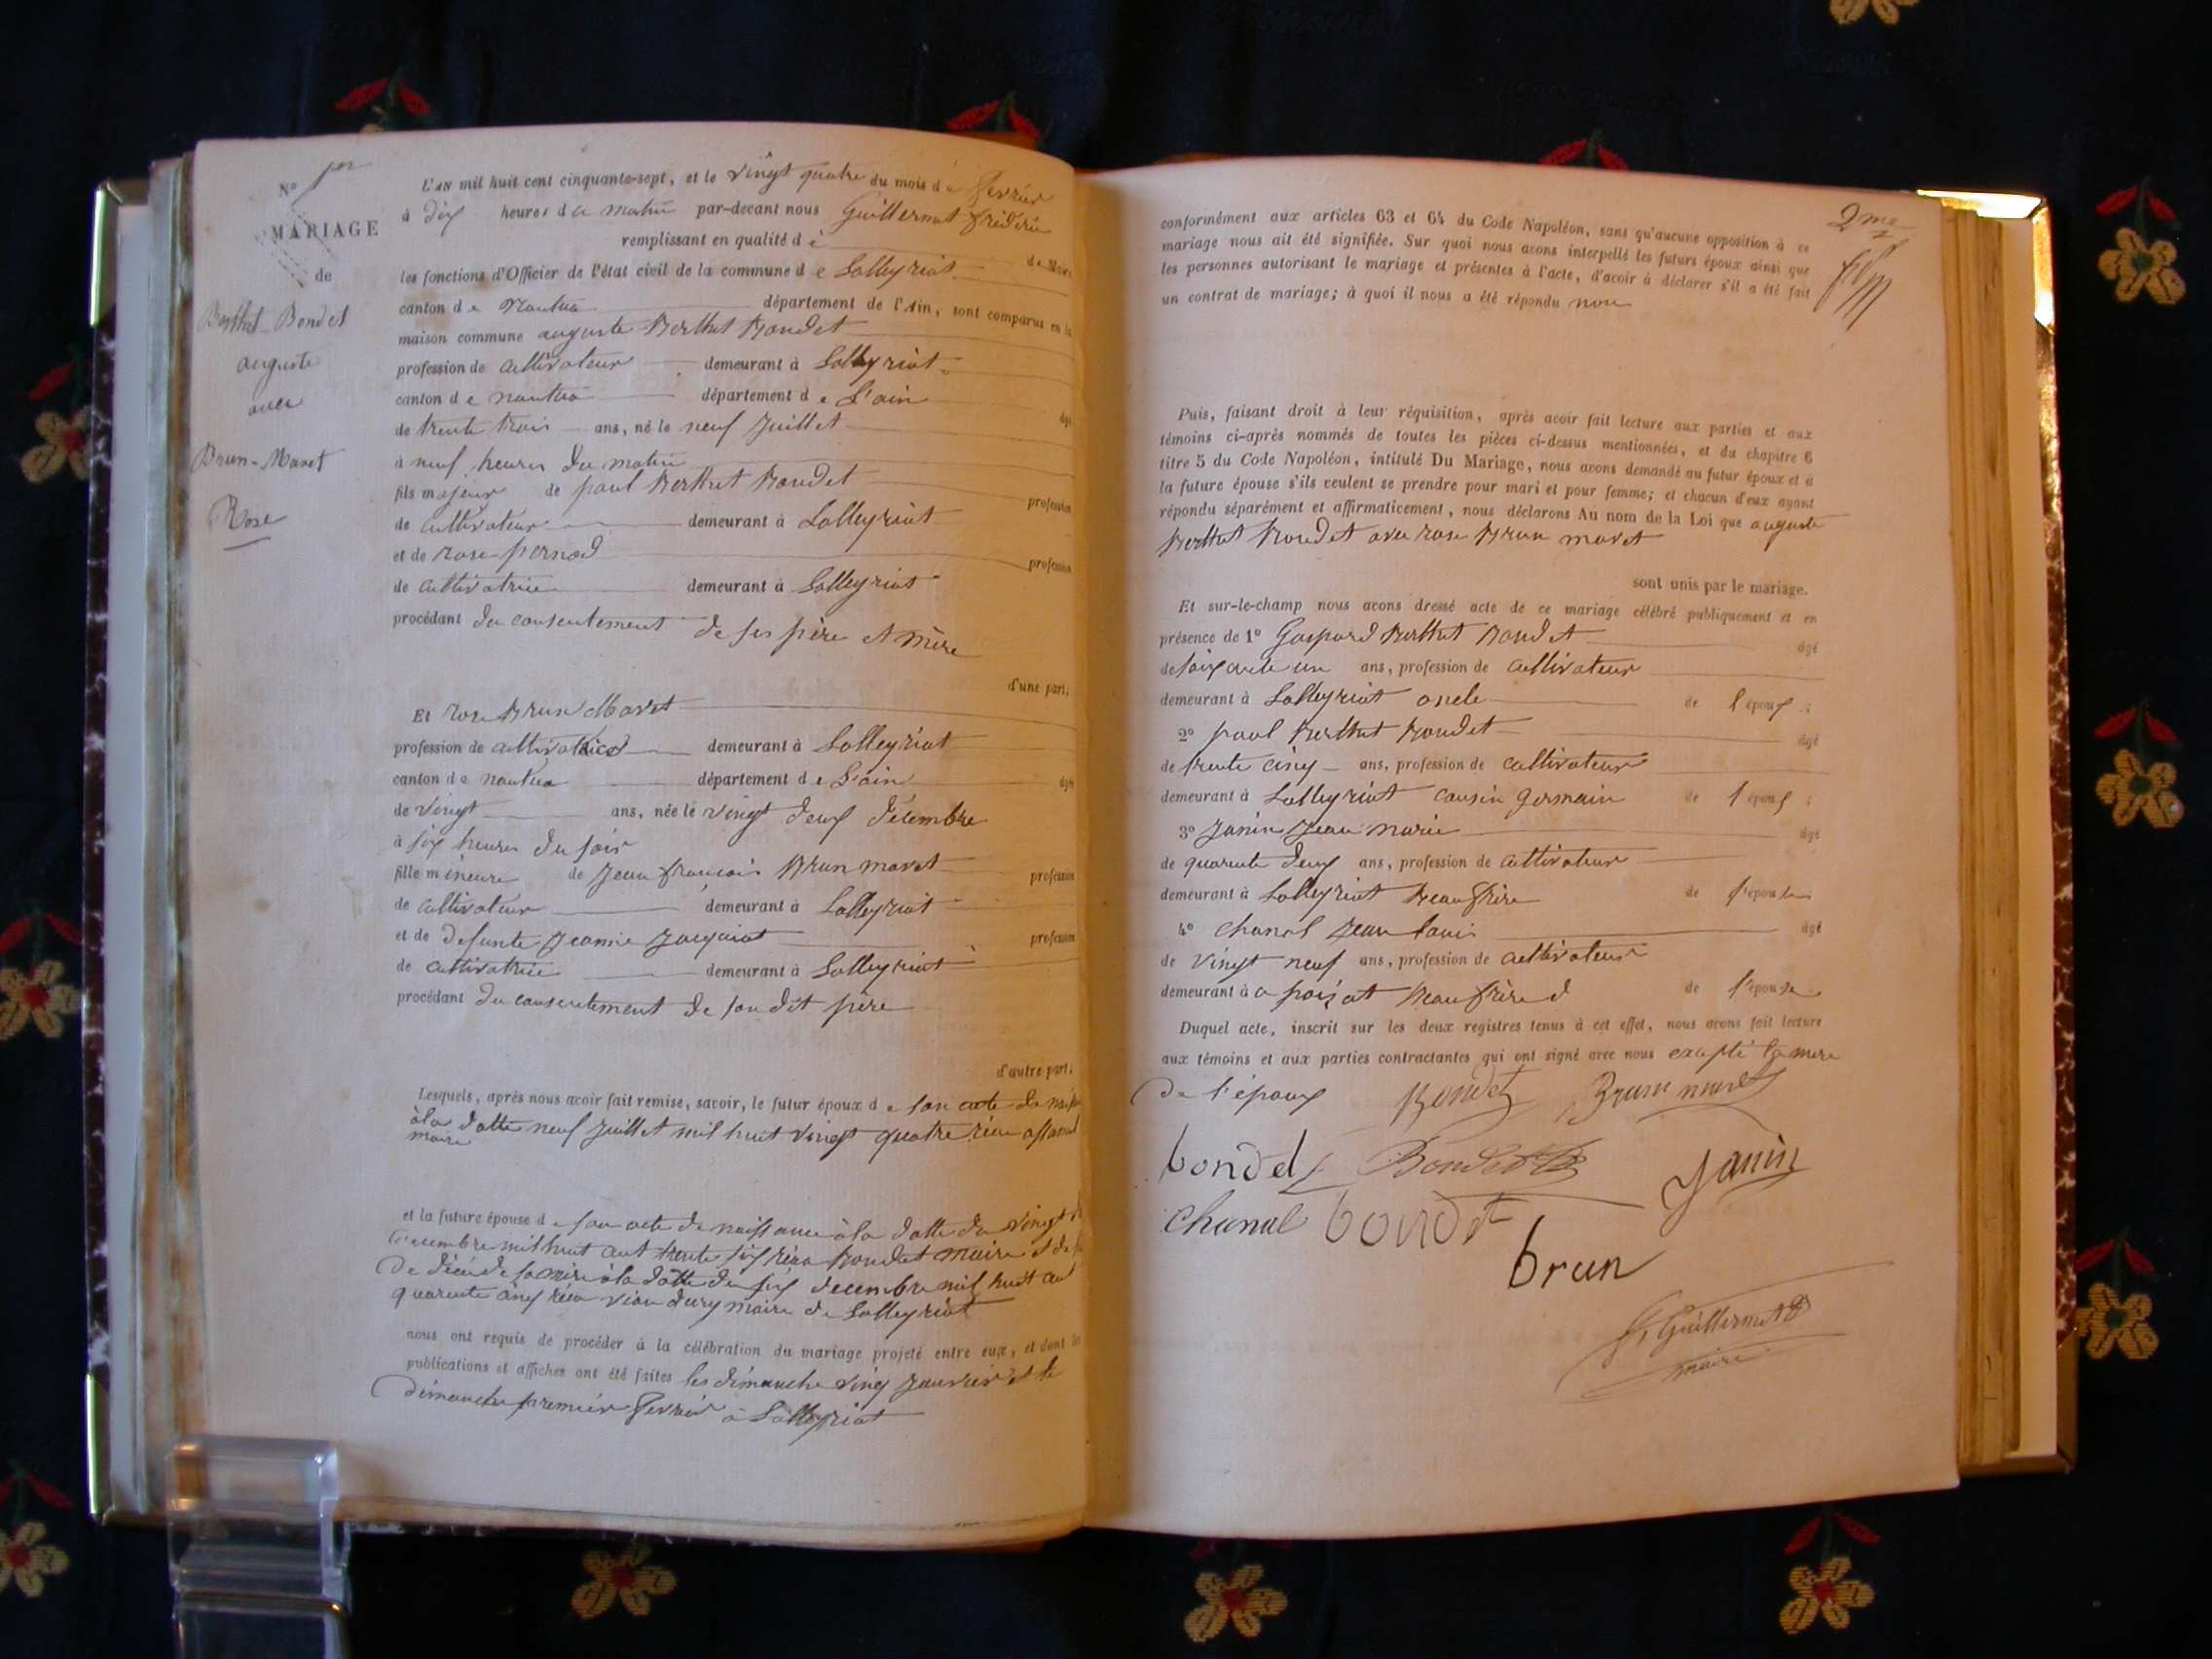 N° 1er
MARIAGE
de
Berthet Bondet
auguste
avec
Brun-Maret
Rose
L'AN mil huit cent cinquante-sept, et le vingt quatre du mois de fevrier
à dix heures du matin par-devant nous Guillermet fréderic
remplissant en qualité de Maire
les fonctions d'Officier de l'état civil de la commune de Lalleyriat
canton de nantua département de l'Ain, sont comparus en la
maison commune auguste Berthet Bondet
profession de cultivateur demeurant à Lalleyriat
canton de nantua département de L'ain âgé
de trente trois ans, né le neuf Juillet
à neuf heures du matin
fils majeur de paul Berthet Bondet profession
de cultivateur demeurant à Lalleyriat
et de rose pernod profession
de cultivatrice demeurant à Lalleyriat
procédant du consentement de ses père et mère
d'une part;
Et rose Brun Maret
profession de cultivatrice demeurant à Lalleyriat
canton de nantua département de L'ain âgée
de vingt ans, née le vingt deux décembre
à six heures du soir
fille mineure de Jean françois Brun maret profession
de cultivateur demeurant à Lalleyriat
et de defunte Jeanne profession
de cultivatrice demeurant à Lalleyriat
procédant du consentement de son dit père
d'autre part;
Lesquels, après nous avoir fait remise, savoir, le futur époux de son acte de
à la datte neuf Juillet mil huit vingt quatre
maire
et la future épouse de son acte de naissance à la datte du vingt
decembre mil huit cent trente six Bondet maire et de
de décé de sa mère à la datte du six decembre mil huit cent
quarente cinq maire de Lalleyriat
nous ont requis de procéder à la célébration du mariage projeté entre eux, et dont les
publications et affiches ont été faites les dimanche vinq Janvier et le
dimanche premier fevrier à Lalleyriat
2me
conformément aux articles 63 et 64 du Code Napoléon, sans qu'aucune opposition à ce
mariage nous ait été signifiée. Sur quoi nous avons interpellé les futurs époux ainsi que
les personnes autorisant le mariage et présentes à l'acte, d'avoir à déclarer s'il a été fait
un contrat de mariage; à quoi il nous a été répondu non
Puis, faisant droit à leur réquisition, après avoir fait lecture aux parties et aux
témoins ci-après nommés de toutes les pièces ci-dessus mentionnées, et du chapitre 6
titre 5 du Code Napoléon, intitulé Du Mariage, nous avons demandé au futur époux et à
la future épouse s'ils veulent se prendre pour mari et pour femme; et chacun d'eux ayant
répondu séparément et affirmativement, nous déclarons Au nom de la Loi que auguste
Berthet Bondet avec rose Brun maret
sont unis par le mariage.
Et sur-le-champ nous avons dressé acte de ce mariage célébré publiquement et en
présence de 1° Gaspard Berthet Bondet âgé
de soixante un ans, profession de cultivateur
demeurant à Lalleyriat oncle de l'époux;
2° paul Berthet Bondet âgé
de trente cinq ans, profession de cultivateur
demeurant à Lalleyriat cousin germain de l'époux;
3° Janin Jean marie âgé
de quarente deux ans, profession de cultivateur
demeurant à Lalleyriat Beau frère de l'épouse
4° chanal Jean louis âgé
de vingt neuf ans, profession de cultivateur
demeurant à a poizat Beau frère de l'épouse
Duquel acte, inscrit sur les deux registres tenus à cet effet, nous avons fait lecture
aux témoins et aux parties contractantes qui ont signé avec nous excepté la mere
de l'époux Bondet Brun maret
bondet Bondet Janin
chanal bondet
brun
Guillermet
maire